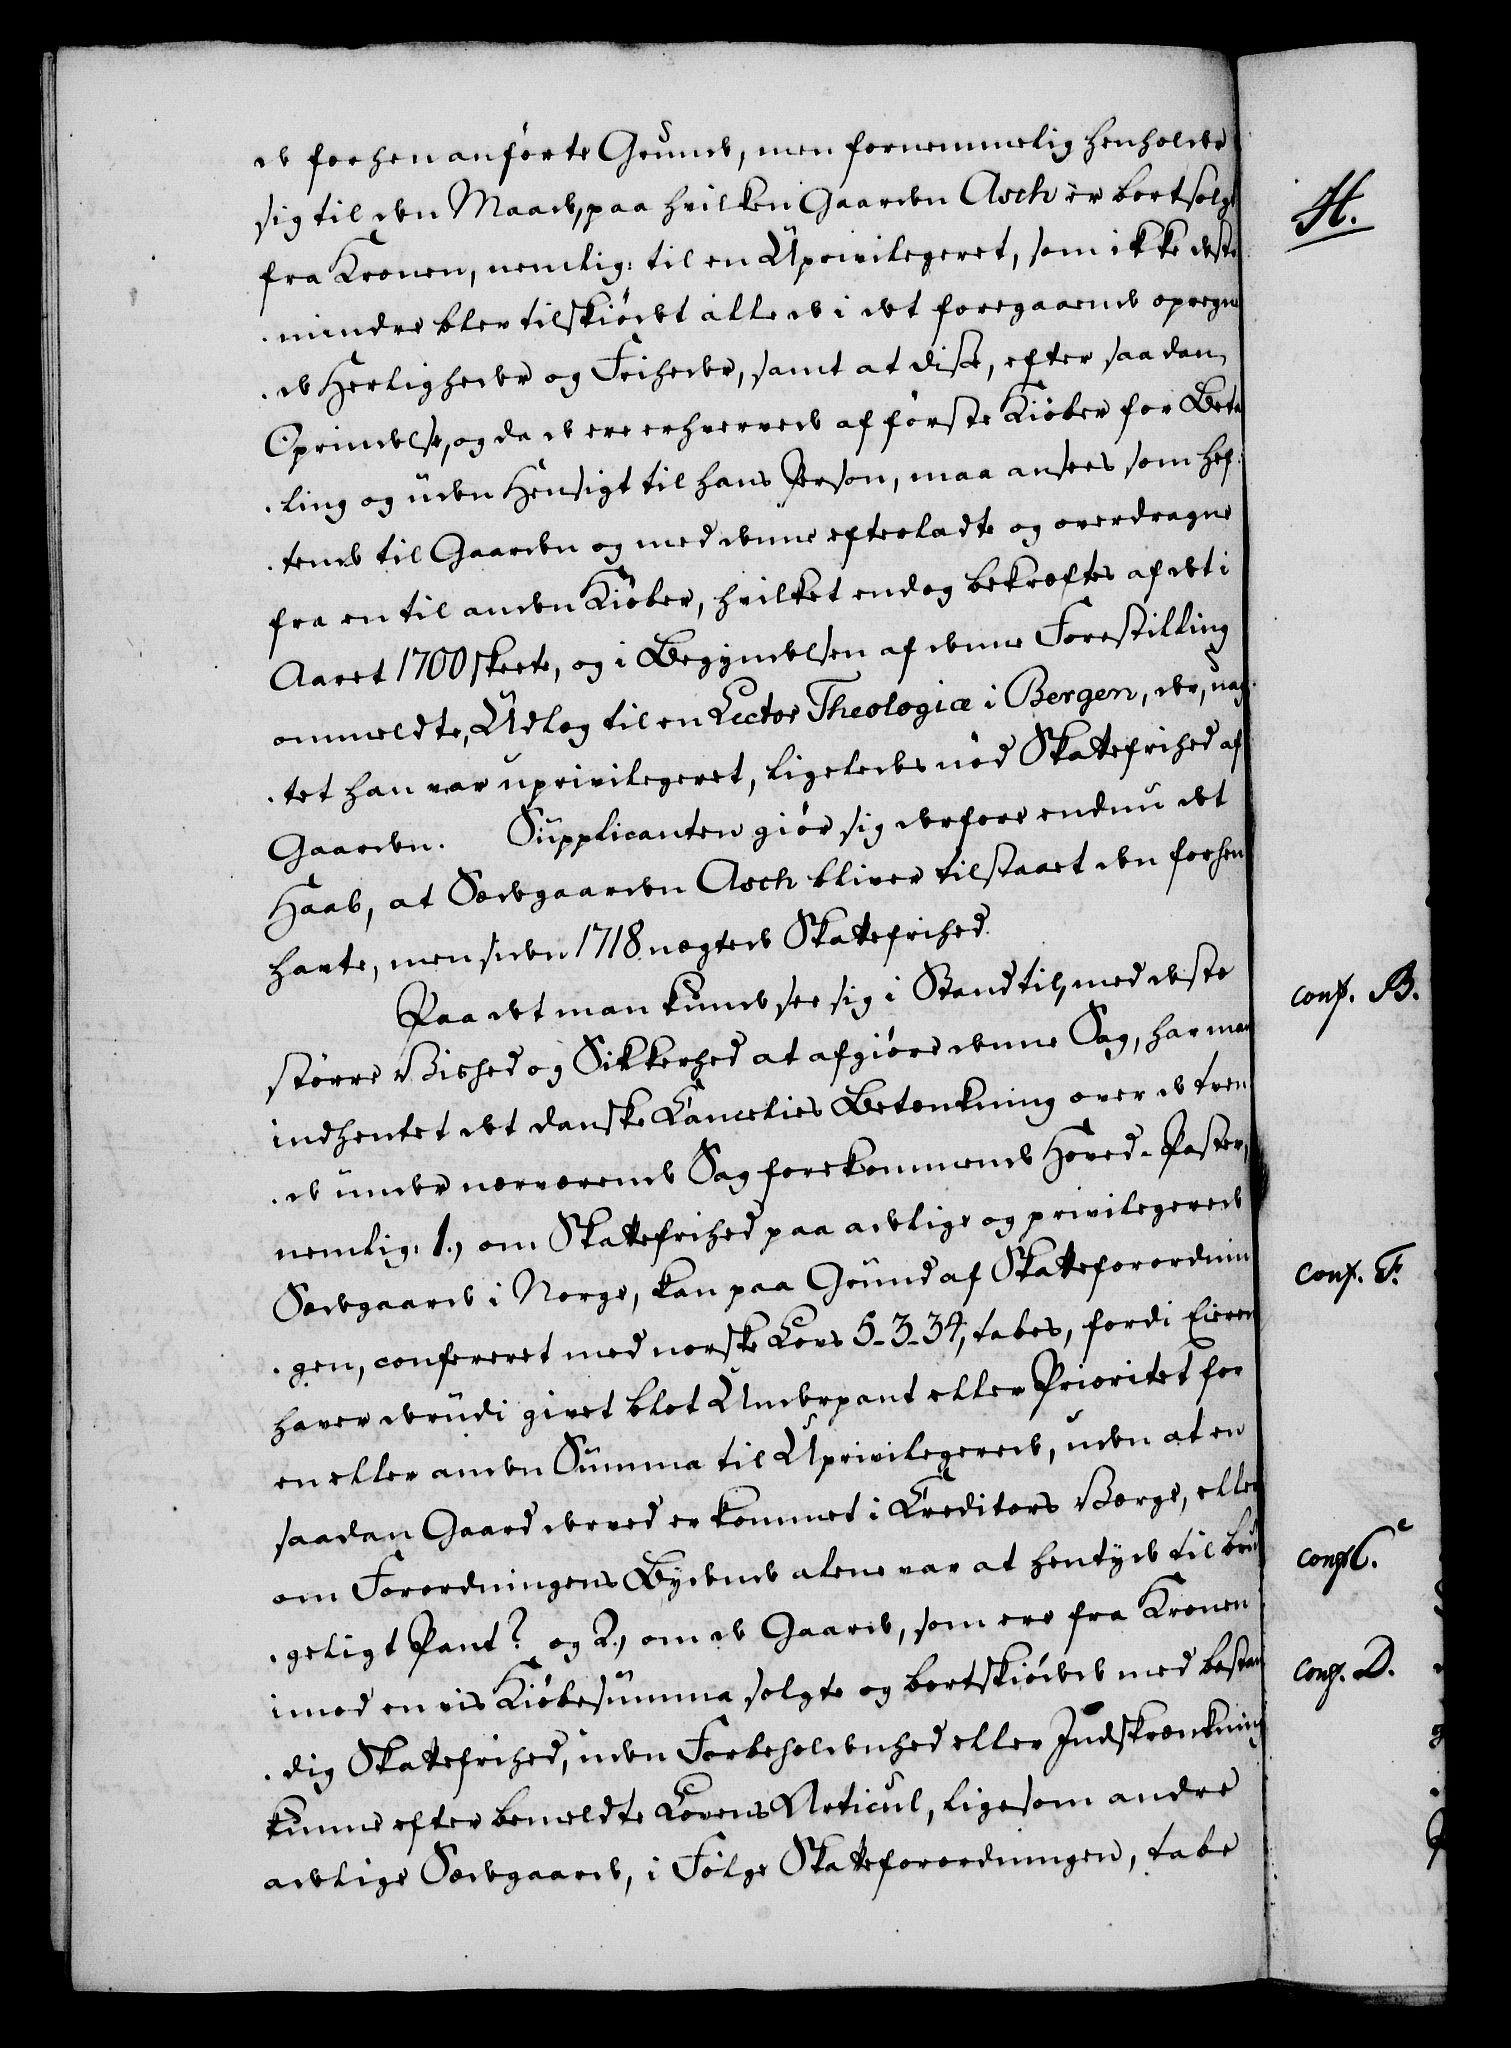 de forhen anførte Grunde, men fornemmelig henholder
sig til den Maade, paa hvilken Gaarden Asch er bortsolgt
fra Kronen, nemlig: til en Uprivilegeret, som ikke deste
. mindre blev tilskiødet alle de i det foregaaende opregne
. de Herligheder og Friheder, samt at disse, efter saadan
Oprindelse, og da de ere erhvervede af første Kiøber for Beta
. ling og uden Hensigt til hans Person, maa ansees som hef
. tende til Gaarden og med denne efterladte og overdragne
fra en til anden Kiøber, hvilket endog bekræftes af det i
Aaret 1700 skeete, og i Begyndelsen af denne Forestilling
ommeldte, Udlæg til en Lector Theologiæ i Bergen, der, uag
. tet han var uprivilegeret, ligeledes nød Skattefrihed af
Gaarden. Supplicanten giør sig derfore endnu det
Haab, at Sædegaarden Asch bliver tilstaaet den forhen
havte, men siden 1718 nægtede Skattefrihed.
Paa det man kunde see sig i Stand til, med deste
større Vished og Sikkerhed at afgiøre denne Sag, har man
indhentet det danske Cancelies Betænkning over de tven
. de under nærværende Sag forekommende Hoved-Poster,
nemlig: 1., om Skattefrihed paa adelige og privilegerede
Sædegaarde i Norge, kan paa Grund af Skatteforordnin
. gen, confereret med norske Lovs 5-3-34, tabes, fordi Eieren
haver derudi givet blot Underpant eller Prioritet for
en eller anden Summa til Uprivilegerede, uden at en
saadan Gaard derved er kommet i Creditors Værge, eller
om Forordningens Bydende alene var at hentyde til bru
. geligt Pant? og 2., om de Gaarde, som ere fra Kronen
imod en vis Kiøbesumma solgte og bortskiødede med bestan
. dig Skattefrihed, uden Forbeholdenhed eller Indskrænkning
kunne efter bemeldte Lovens Articul, ligesom andre
adelige Sædegaarde, i Følge Skatteforordningen, tabe
H.
conf. B.
conf. F.
conf. C.
conf. D.